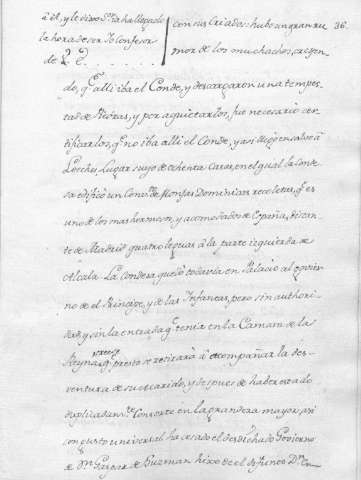 à él, y le dixo S.r ha llegado
la hora de ser Jo Confesor
de
con sus Criados: hubo un gran ru 36.
mor de los muchachos, creyen-
do, q.e alli iba el Conde, y descargaron una tempes-
tad de Piedras, y por aquietarlos, fue necesario cer-
tificarlos, q.e no iba alli el Conde, y asi llegò en salvo à
Loeches Lugar suyo de ochenta Casas, en el qual la Conde
sa edificò un Conv.to de Monjas Dominicas recoletas, q.e es
uno de los mas hermosos, y acomodados de España, distan-
te de Madrid quatro leguas à la parte izquierda de
Alcala. La Condesa quedò todavia en Palacio al govier-
no de el Principe, y de las Infantas, pero sin authori-
dad, y sin la entrada q.e tenia en la Camara de la
Reyna, y q.e presto se retirarà à acompañar la des-
ventura de su marido, y despues de haber estado
Consorte en la grandeza mayor, asi
con gusto universal ha cesado el desdichado Govierno
de D.n Gaspar de Guzman hixo de el difunto D.n En-